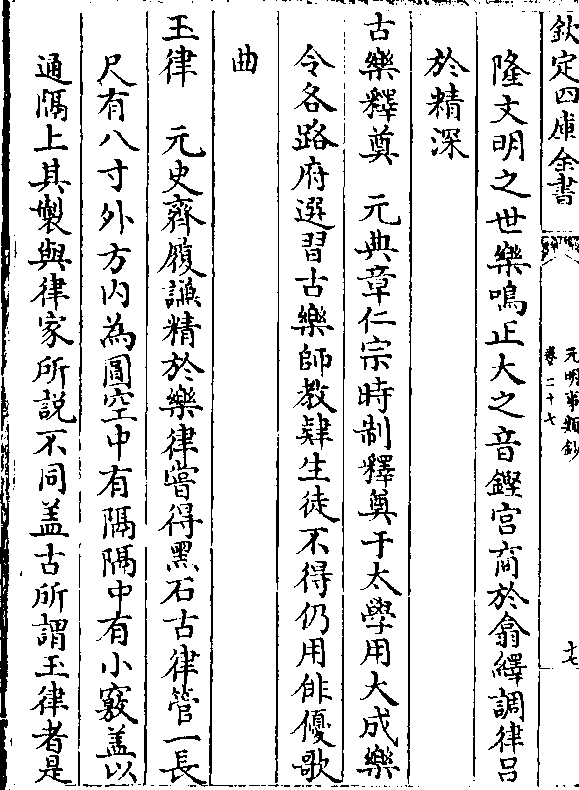 欽定四庫全書
元明事類鈔
卷二十七
十七
隆文明之世樂鳴正大之音鏗宫商於翕繹調律吕
於精深
古樂釋奠　元典章仁宗時制釋奠于太學用大成樂
令各路府選習古樂師教肄生徒不得仍用俳優歌
曲
玉律　元史齊履謙精於樂律嘗得黑石古律管一長
尺有八寸外方内為圓空中有隔隔中有小竅盖以
通隔上其製與律家所説不同盖古所謂玉律者是